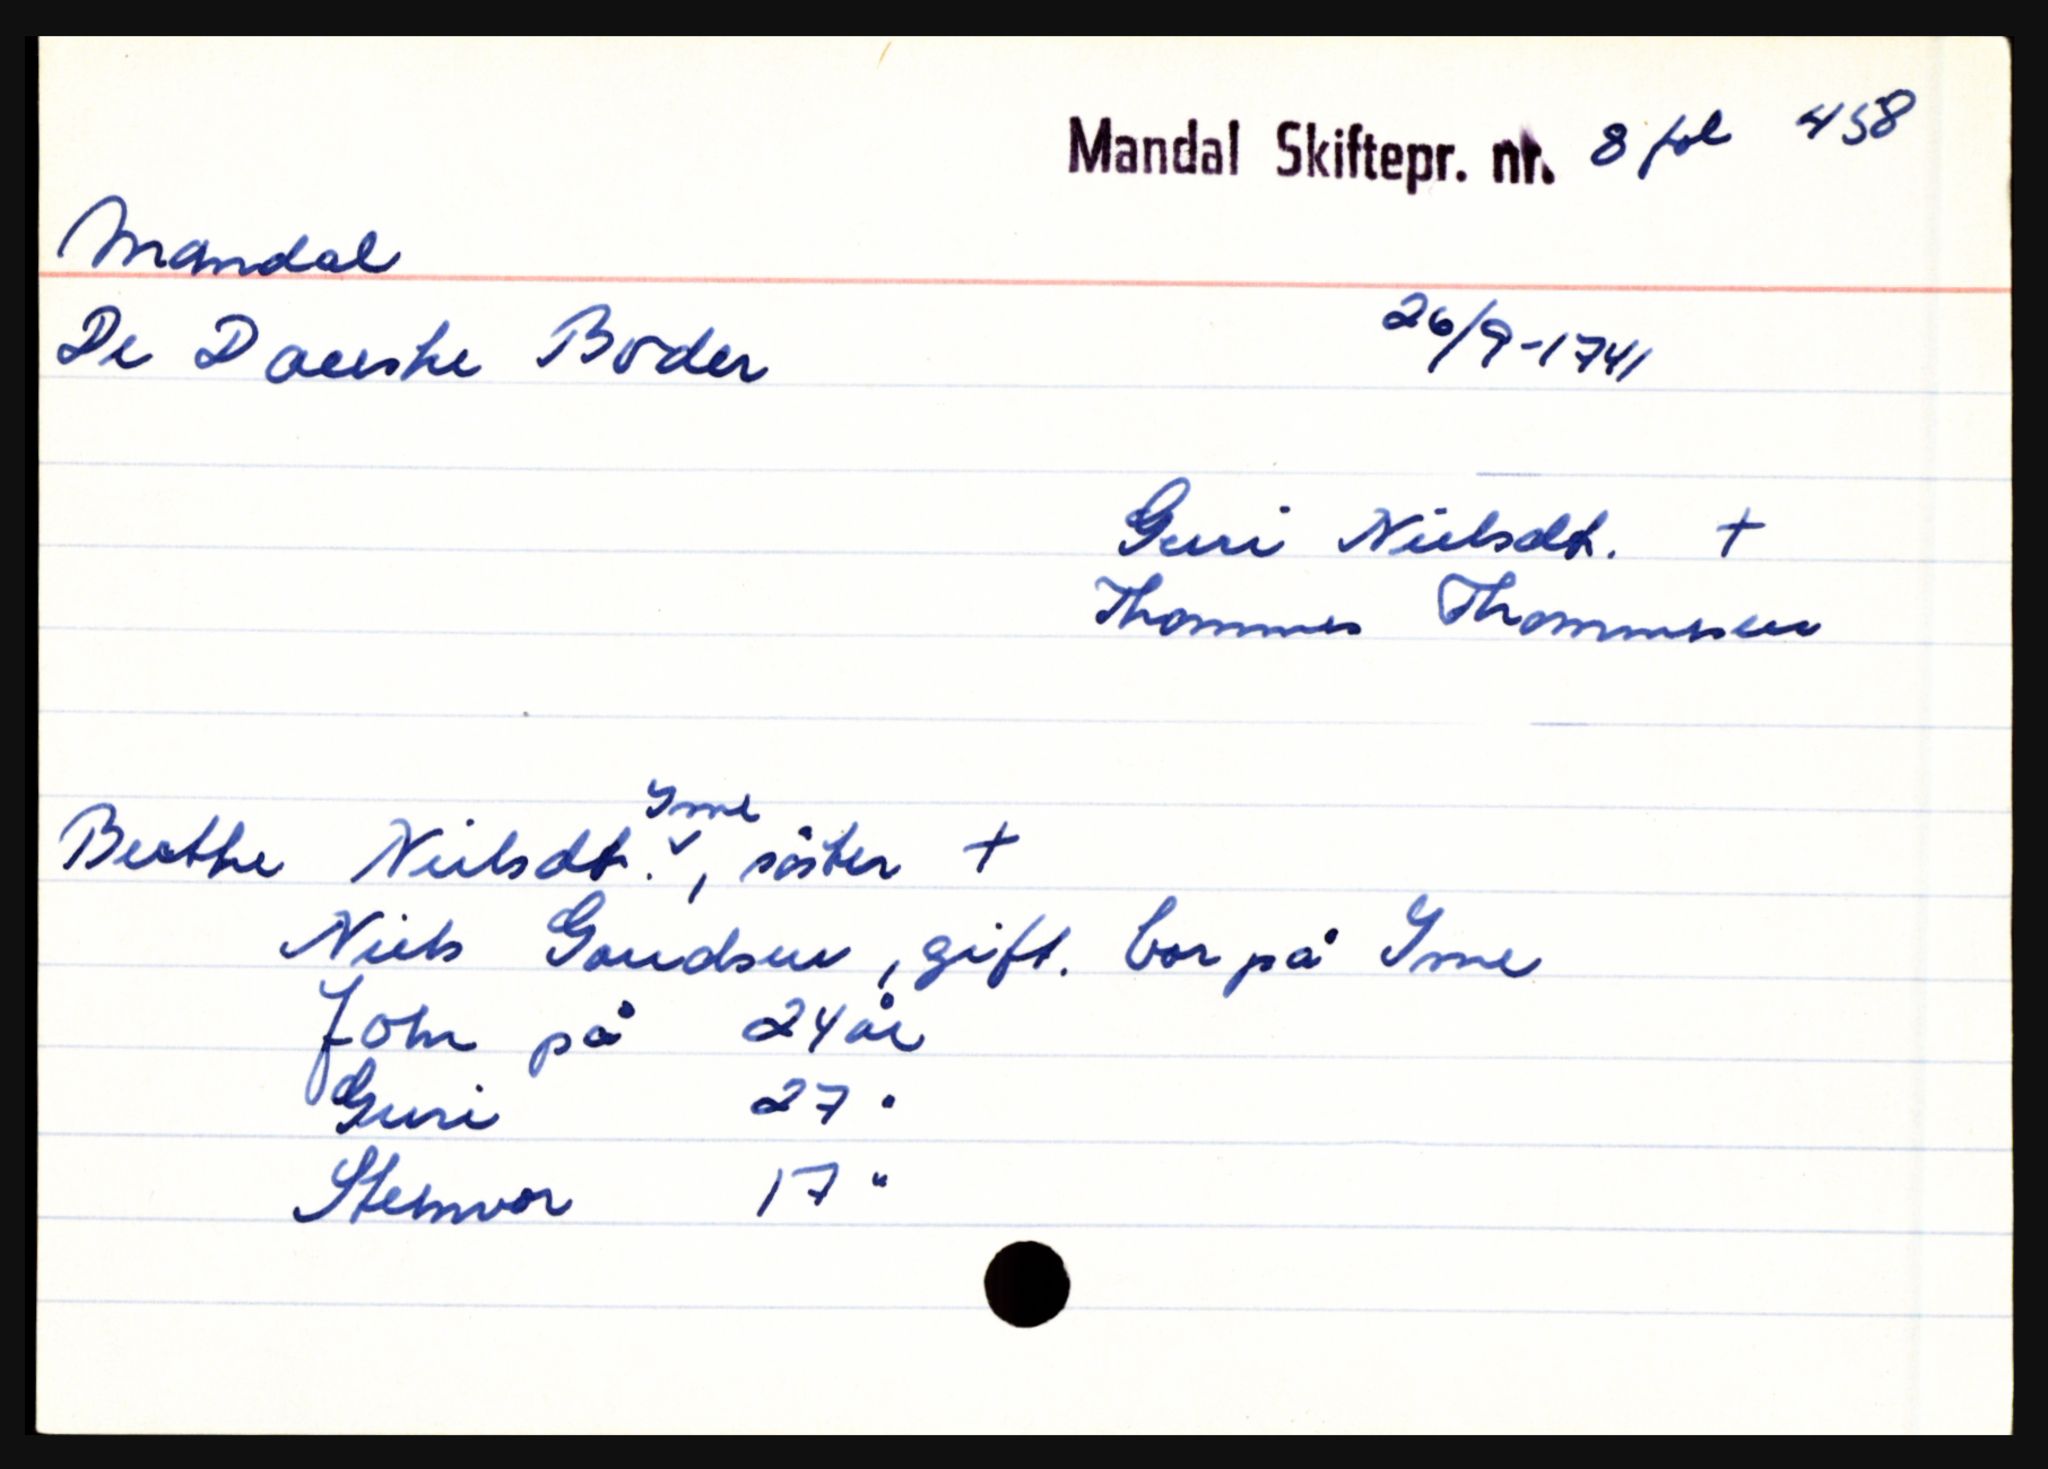 Mandal Skiftepr. nr. 8 fol 458
Mandal
De Danske Boder 26/9-1741
Guri Nielsdt. +
Thommes Thommesen
Yme
Berthe Nielsdt. ✓, söster +
Niels Gaudsen, gift. bor på Yme
John på 24 år
Guri 27 "
Stenvor 17 "